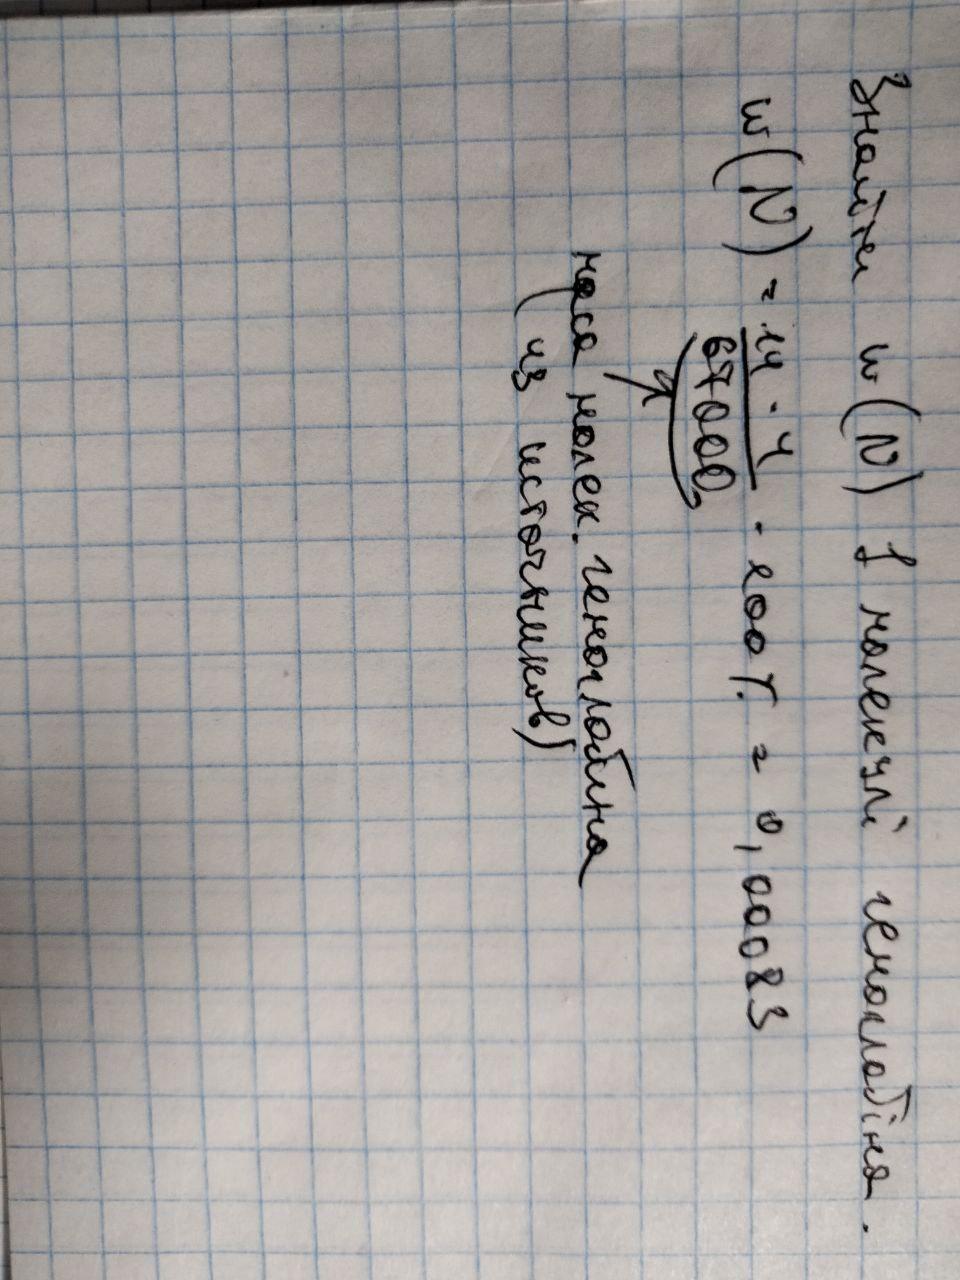 Знайти w(N) в молекулі гемоглобіна.
w(N) = 14 · 4 / 67000 · 100% = 0,00083
маса молек. гемоглобина
(из источников)